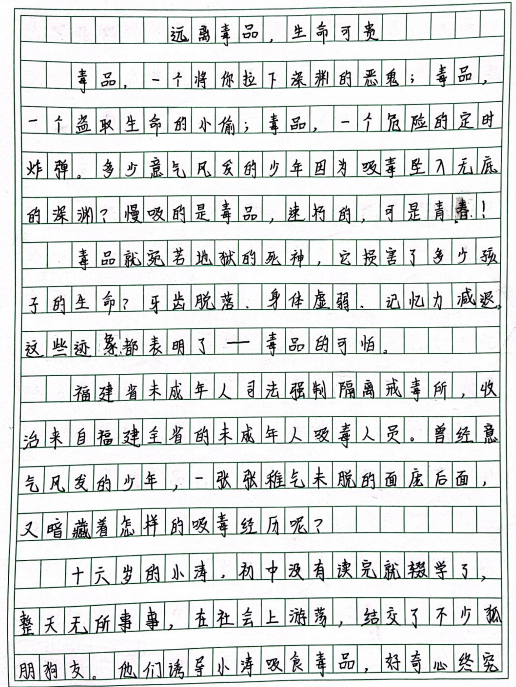 远离毒品，生命可贵
毒品，一个将你拉下深渊的恶鬼；毒品，
一个盗取生命的小偷；毒品，一个危险的定时
炸弹。多少意气风发的少年因为吸毒坠入无底
的深渊？慢吸的是毒品，速朽的，可是青春！
毒品就宛若地狱的死神，它损害了多少孩
子的生命？牙齿脱落、身体虚弱、记忆力减退，
这些迹象都表明了——毒品的可怕。
福建省未成年人司法强制隔离戒毒所，收
治来自福建全省的未成年人吸毒人员。曾经意
气风发的少年，一张张稚气未脱的面庞后面，
又暗藏着怎样的吸毒经历呢？
十六岁的小涛，初中没有读完就辍学了，
整天无所事事，在社会上游荡，结交了不少狐
朋狗友。他们诱导小涛吸食毒品，好奇心终究